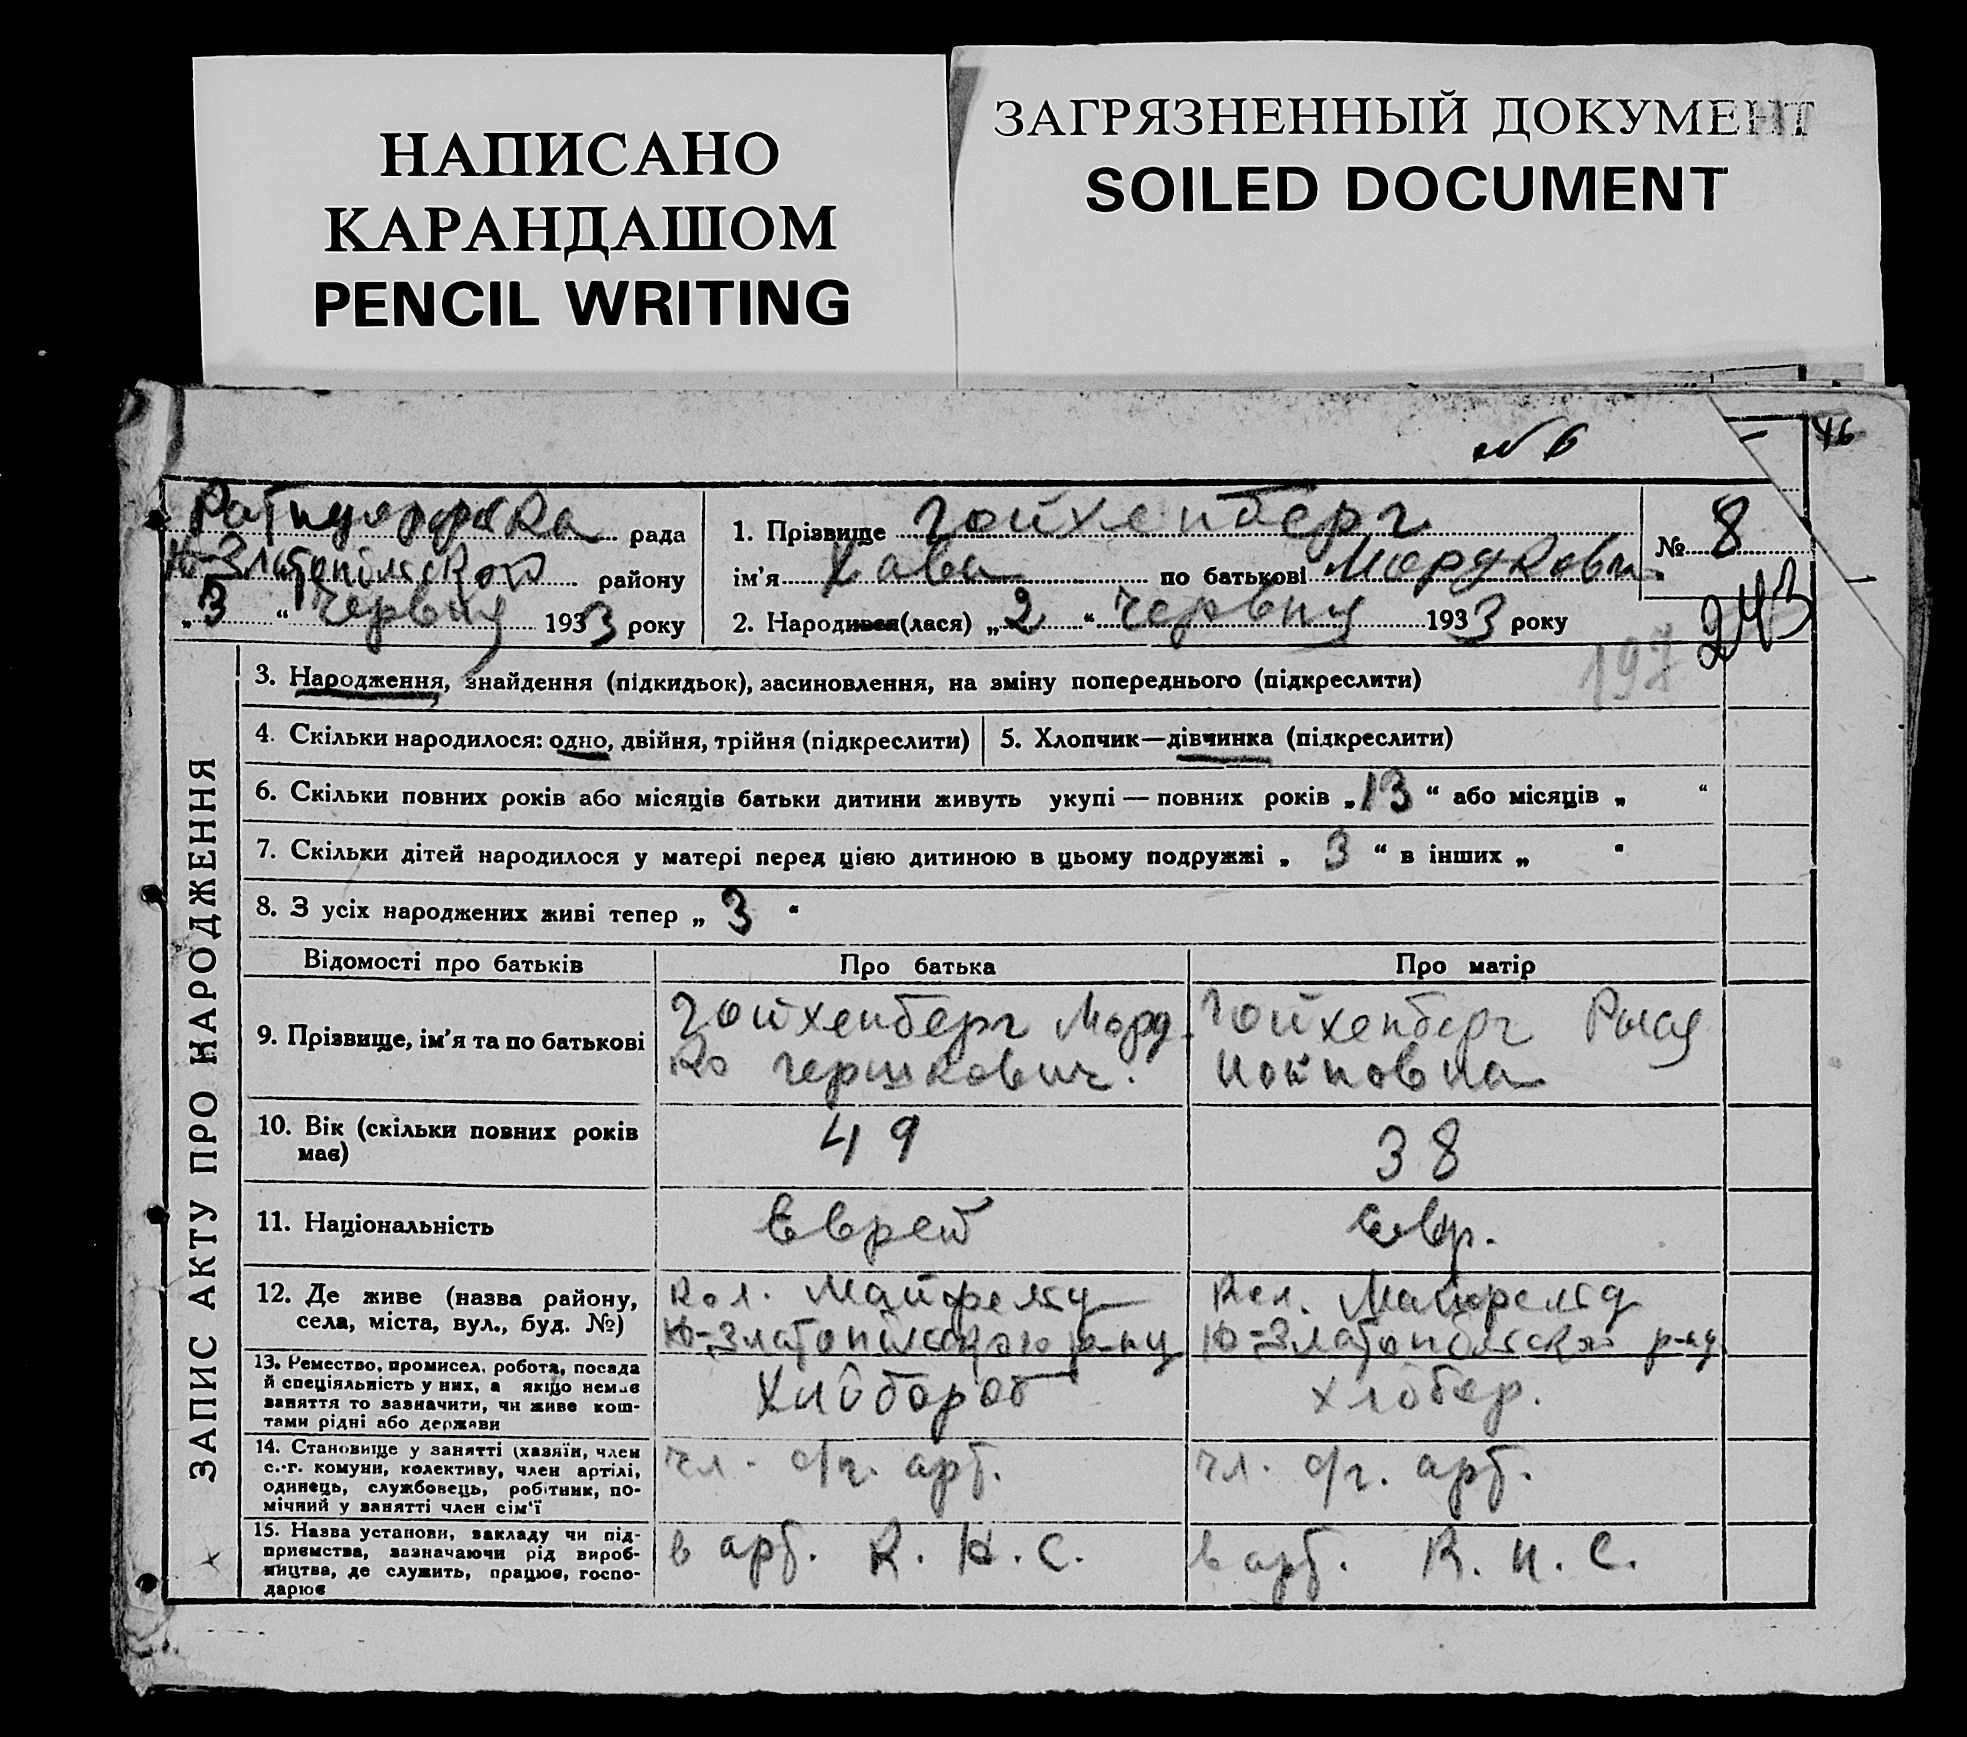 НАПИСАНО
КАРАНДАШОМ
PENCIL WRITING
ЗАГРЯЗНЕННЫЙ ДОКУМЕНТ
SOILED DOCUMENT
46
№ 6
рада
Ю-Златопільского району
„3“ червня 1933 року
1. Прізвище Гойхенберг
ім’я Хава по батькові Мордковн.
2. Народився(лася) „2“ червня 1933 року
№ 8
243
197
ЗАПИС АКТУ ПРО НАРОДЖЕННЯ
3. Народження, знайдення (підкидьок), засиновлення, на зміну попереднього (підкреслити)
4. Скільки народилося: одно, двійня, трійня (підкреслити)
5. Хлопчик—дівчинка (підкреслити)
6. Скільки повних років або місяців батьки дитини живуть укупі — повних років „13“ або місяців „ “
7. Скільки дітей народилося у матері перед цією дитиною в цьому подружжі „ 3 “ в інших „ “
8. З усіх народжених живі тепер „ 3 “
Відомості про батьків
Про батька
Про матір
9. Прізвище, ім’я та по батькові
ГойхенбергМорд-
ко Гершкович.
Гойхенберг
10. Вік (скільки повних років
має)
49
38
11. Національність
Еврей
евр.
12. Де живе (назва району,
села, міста, вул., буд. №)
кол. Майфельд
Ю-Златопільского р-ну
Кол. Майфельд
Ю-Златопільской р-ну
13. Ремество, промисел, робота, посада
й спеціяльність у них, а якщо немає
заняття то зазначити, чи живе кош-
тами рідні або держави
Хлібороб
хлібор.
14. Становище у занятті (хазяїн, член
с.-г. комуни, колективу, член артілі,
одинець, службовець, робітник, по-
мічний у занятті член сім’ї
чл. с/г. арт.
чл. с/г. арт.
15. Назва установи, закладу чи під-
приємства, зазначаючи рід вироб-
ництва, де служить, працює, госпо-
дарює
в арт. К. Н. С.
в арт. К. Н. С.